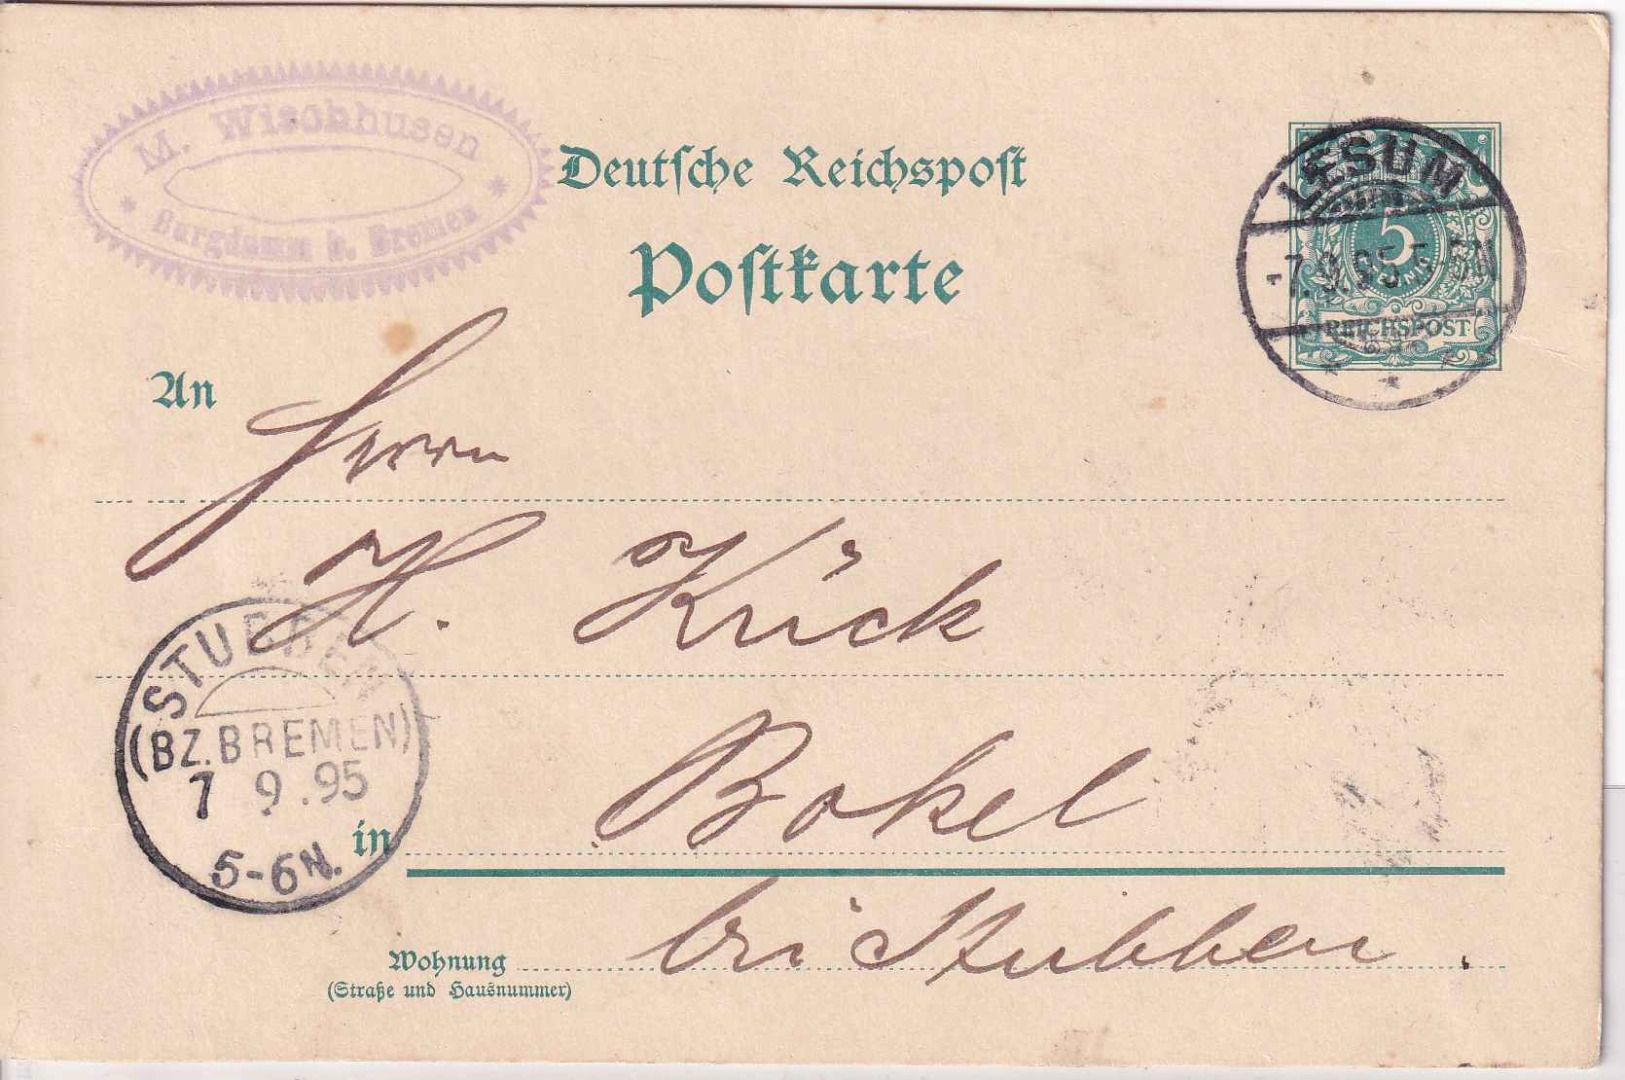 M. Wischhusen
* Burgdamm b. Bremen *
Deutsche Reichspost
Postkarte
LESUM
-7.9.95
5
PFENNIG
REICHSPOST
An
Herrn
H. Kück
STUBBEN
(BZ. BREMEN)
7 9.95
5-6N.
in
Bokel
bei Stubben.
Wohnung
(Straße und Hausnummer)